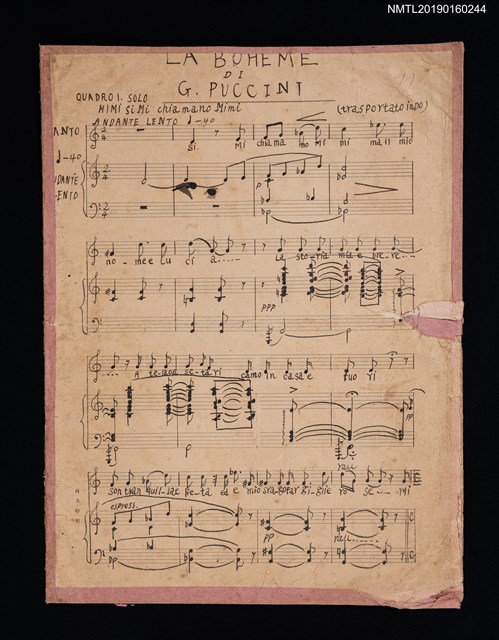 NMTL20190160244
LA BOHEME
DI
G. PUCCINI
QUADRO I. SOLO
MIMI Si Mi chiamano Mimi
(trasportato in DO)
ANDANTE LENTO ♩-40
ANTO
Si. Mi chia ma no Mi mi ma il mio
♩-40
p
no - me e Lu ci a.....
La sto-ria mia e bre-ve...
ppp
A te la o se-ta ri camo in casa e fuo ri
pp
rall
son tran quil-la e lie-ta ed e mio sva-go far gi-glie ro se... Mi
espress.
pp
rall......